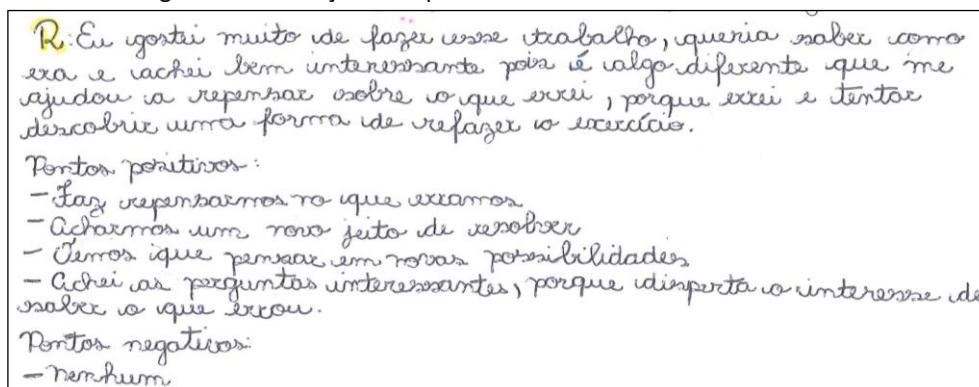 R: Eu gostei muito de fazer esse trabalho, queria saber como
era e achei bem interessante pois é algo diferente que me
ajudou a repensar sobre o que errei, porque errei e tentar
descobrir uma forma de refazer o exercício.
Pontos positivos:
- Faz repensarmos no que erramos
- Acharmos um novo jeito de resolver
- Temos que pensar em novas possibilidades
- Achei as perguntas interessantes, porque disperta o interesse de
saber o que errou.
Pontos negativos:
- nenhum